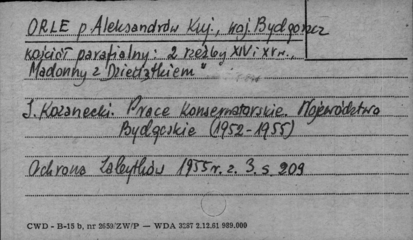 ORLE p Aleksandrów Kuj., woj. Bydgoszcz
kościół parafialny: 2 rzeźby XIV i XV w.,
Madonny z Dzieciątkiem"
J. Kozanecki. Prace Konserwatorskie. Województwo
Bydgoskie (1952-1955)
Ochrona Zabytków 1955 r. z. 3. s. 209
CWD - B-15 b, nr 2659/ZW/P — WDA 3287 2.12.61 989.000